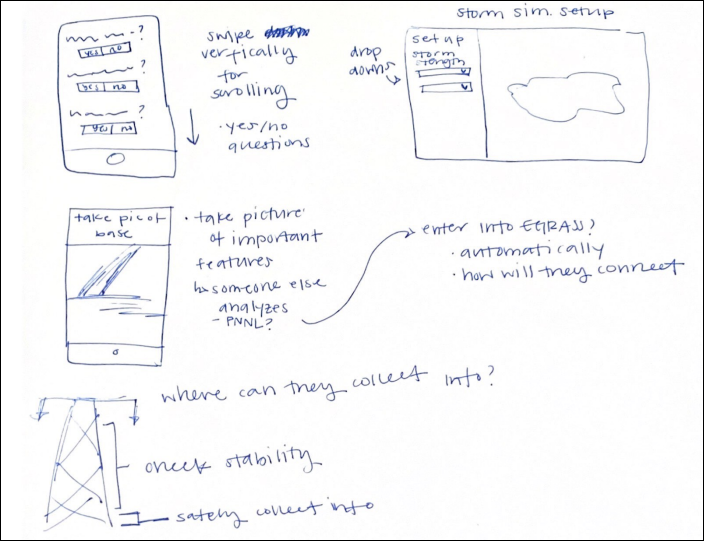 ? yes no
? yes no
? yes no
swipe
vertically
for
scrolling
· yes/no
questions
storm sim. setup
drop
downs
set up
storm
origin
take pic of
base
· take picture
of important
features
↳ someone else
analyzes
- PNNL?
enter into EGRASS?
· automatically
· how will they connect
where can they collect info?
check stability
safely collect info